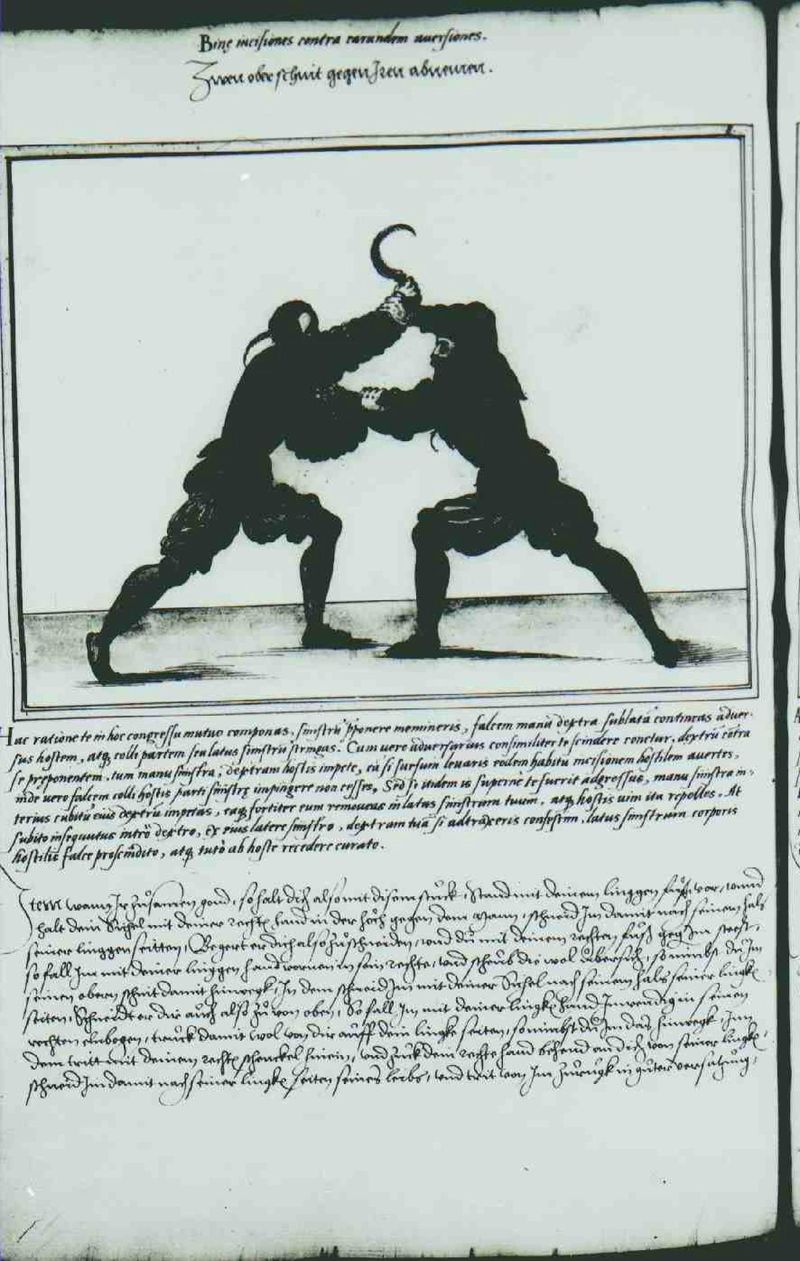 Binę incisiones contra earundem auersiones.
Zwen ober schnit gegen Iren abnemen.
Hac ratione te in hoc congressu mutuo componas, sinistrū pponere memineris, falcem manu dextra sublata contineas aduer-
sus hostem, atq colli partem seu latus sinistrū stringas. Cum vero aduersarius consimiliter te scindere conetur, dextrū cōtra
se prępponentem, tum manu sinistra, dextram hostis impete, ea si sursum leuaris eodem habitu incisionem hostilem auertes,
inde vero falcem colli hostis parti sinistrę impingere non cesses. Sed si itidem is superne te fuerit adgressus, manu sinistra in-
terius cubitū eius dextrū impetas, eaq fortiter eum remoueas in latus sinistrum tuum, atq hostis vim ita repelles. At
subito insequutus intrō dextro, ex eius latere sinistro, dextram tuā si adtraxeris confestim, latus sinistrum corporis
hostilis falce proscindito, atq tuto ab hoste recedere curato.
Item wann Ir zůsamen gond, so halt dich also mit disem stuck, Stand mit deinem linggen fůß vor, vnnd
halt dein Sichel mit deiner rechtē hand in der höch gegen dem Mann, schneid Im damit nach seinem hals
seiner linggen seitten, Begert er dich also zůschneiden, vnd du mit deinem rechten fůß gegen Im steest,
so fall Im mit deiner linggen hand vornen in sein rechte, vnd scheub die wol übersich, so nimbst du Im
seinen obern schnit damit hinwegk, In dem schneid Im mit deiner Sichel nach seinem hals seiner lingkē
seiten, Schneidt er dir auch also zů von oben, So fall Im mit deiner lingkē hand Inwendig in seinen
rechten elnbogen, truck damit wol von dir auff dein lingke seiten, so nimbst du Im das hinwegk, Im
dem tritt mit deinem rechtē schenckel hinein, vnd zuck dein rechte hand behend an dich von seiner lingkē,
schneid Im damit nach seiner lingkē seiten seines leibs, vnd trit von Im zurugk in gůter versatzung.